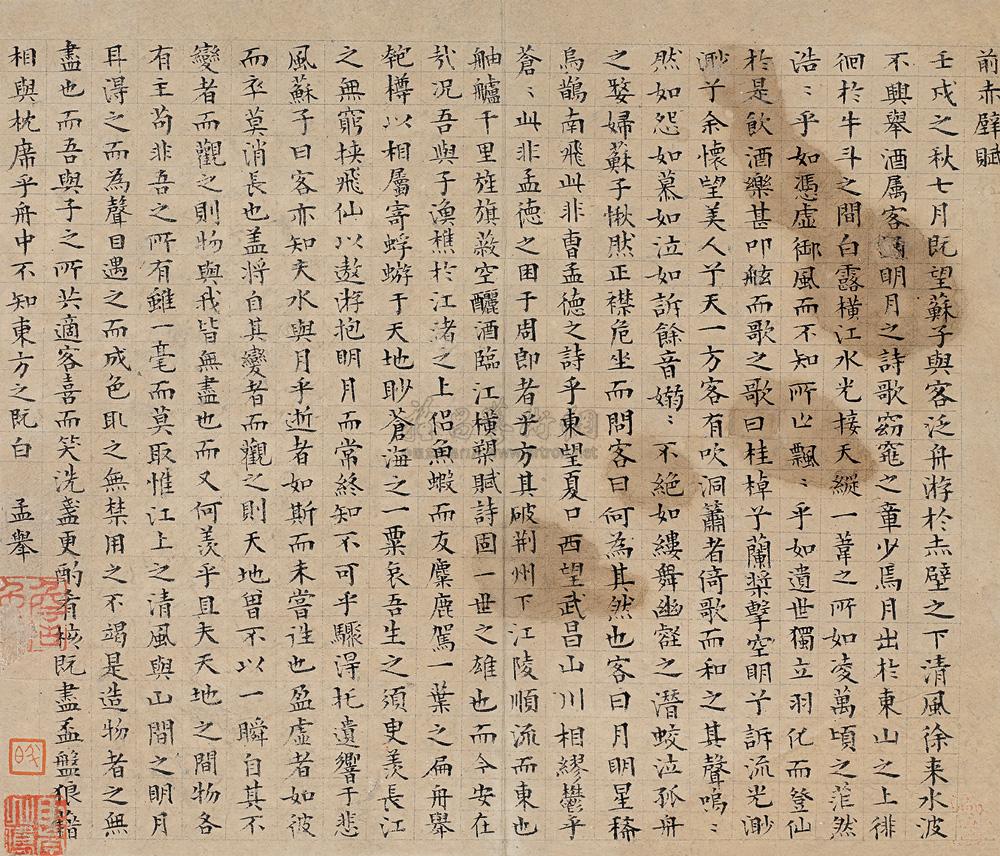 前赤壁賦
壬戌之秋七月既望蘇子與客泛舟游於赤壁之下清風徐来水波
不興舉酒属客誦明月之詩歌窈窕之章少焉月出於東山之上徘
徊於牛斗之間白露橫江水光接天縱一葦之所如凌萬頃之茫然
浩〻乎如憑虛御風而不知所止飄〻乎如遺世獨立羽化而登仙
於是飲酒樂甚叩舷而歌之歌曰桂棹兮蘭槳擊空明兮訴流光渺
渺兮余懷望美人兮天一方客有吹洞簫者倚歌而和之其聲嗚〻
然如怨如慕如泣如訴餘音嫋〻不絶如縷舞幽壑之潛蛟泣孤舟
之嫠婦蘇子愀然正襟危坐而問客曰何為其然也客曰月明星稀
烏鵲南飛此非曹孟德之詩乎東望夏口西望武昌山川相繆鬱乎
蒼〻此非孟德之困于周郎者乎方其破荆州下江陵順流而東也
舳艫千里旌旗蔽空釃酒臨江橫槊賦詩固一世之雄也而今安在
哉況吾與子漁樵於江渚之上侣魚蝦而友麋鹿駕一葉之扁舟舉
匏樽以相屬寄蜉蝣于天地眇蒼海之一粟哀吾生之須臾羡長江
之無窮挾飛仙以遨游抱明月而常終知不可乎驟得托遺響于悲
風蘇子曰客亦知夫水與月乎逝者如斯而未嘗往也盈虛者如彼
而卒莫消長也盖將自其變者而觀之則天地曾不以一瞬自其不
變者而觀之則物與我皆無盡也而又何羡乎且夫天地之間物各
有主苟非吾之所有雖一毫而莫取惟江上之清風與山間之明月
耳得之而為聲目遇之而成色取之無禁用之不竭是造物者之無
盡也而吾與子之所共適客喜而笑洗盞更酌肴核既盡盃盤狼藉
相與枕席乎舟中不知東方之既白 孟舉